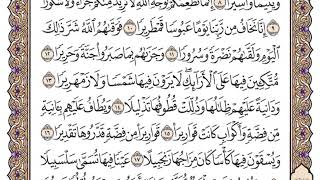 وَيَتِيمًا وَأَسِيرًا ٨ إِنَّمَا نُطْعِمُكُمْ لِوَجْهِ ٱللَّهِ لَا نُرِيدُ مِنكُمْ جَزَآءً وَلَا شُكُورًا
٩ إِنَّا نَخَافُ مِن رَّبِّنَا يَوْمًا عَبُوسًا قَمْطَرِيرًا ١٠ فَوَقَىٰهُمُ ٱللَّهُ شَرَّ ذَٰلِكَ
ٱلْيَوْمِ وَلَقَّىٰهُمْ نَضْرَةً وَسُرُورًا ١١ وَجَزَىٰهُم بِمَا صَبَرُوا۟ جَنَّةً وَحَرِيرًا ١٢
مُّتَّكِـِٔينَ فِيهَا عَلَى ٱلْأَرَآئِكِ لَا يَرَوْنَ فِيهَا شَمْسًا وَلَا زَمْهَرِيرًا ١٣
وَدَانِيَةً عَلَيْهِمْ ظِلَٰلُهَا وَذُلِّلَتْ قُطُوفُهَا تَذْلِيلًا ١٤ وَيُطَافُ عَلَيْهِم بِـَٔانِيَةٍ
مِّن فِضَّةٍ وَأَكْوَابٍ كَانَتْ قَوَارِيرَا۠ ١٥ قَوَارِيرَا۟ مِن فِضَّةٍ قَدَّرُوهَا تَقْدِيرًا ١٦
وَيُسْقَوْنَ فِيهَا كَأْسًا كَانَ مِزَاجُهَا زَنجَبِيلًا ١٧ عَيْنًا فِيهَا تُسَمَّىٰ سَلْسَبِيلًا